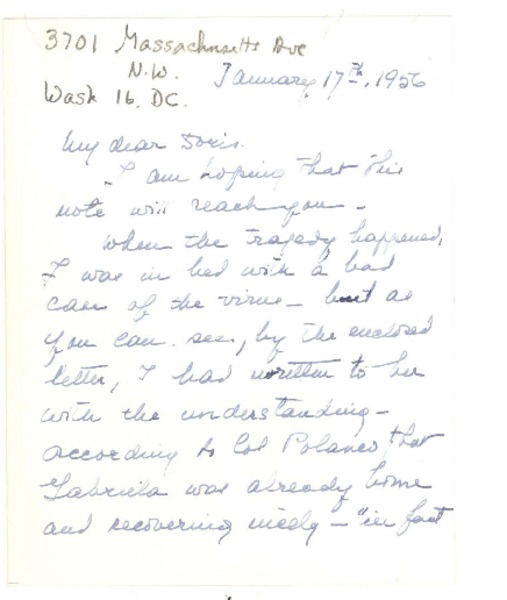 3701 Massachusetts Ave
N.W.
Wash 16. DC.
January 17th, 1956
My dear Doris.
I am hoping that this
note will reach you -
When the tragedy happened,
I was in bed with a bad
case of the virus - but as
you can see, by the enclosed
letter, I had written to her
with the understanding -
according to Col Polanco, that
Gabriela was already home
and recovering nicely - "in fact